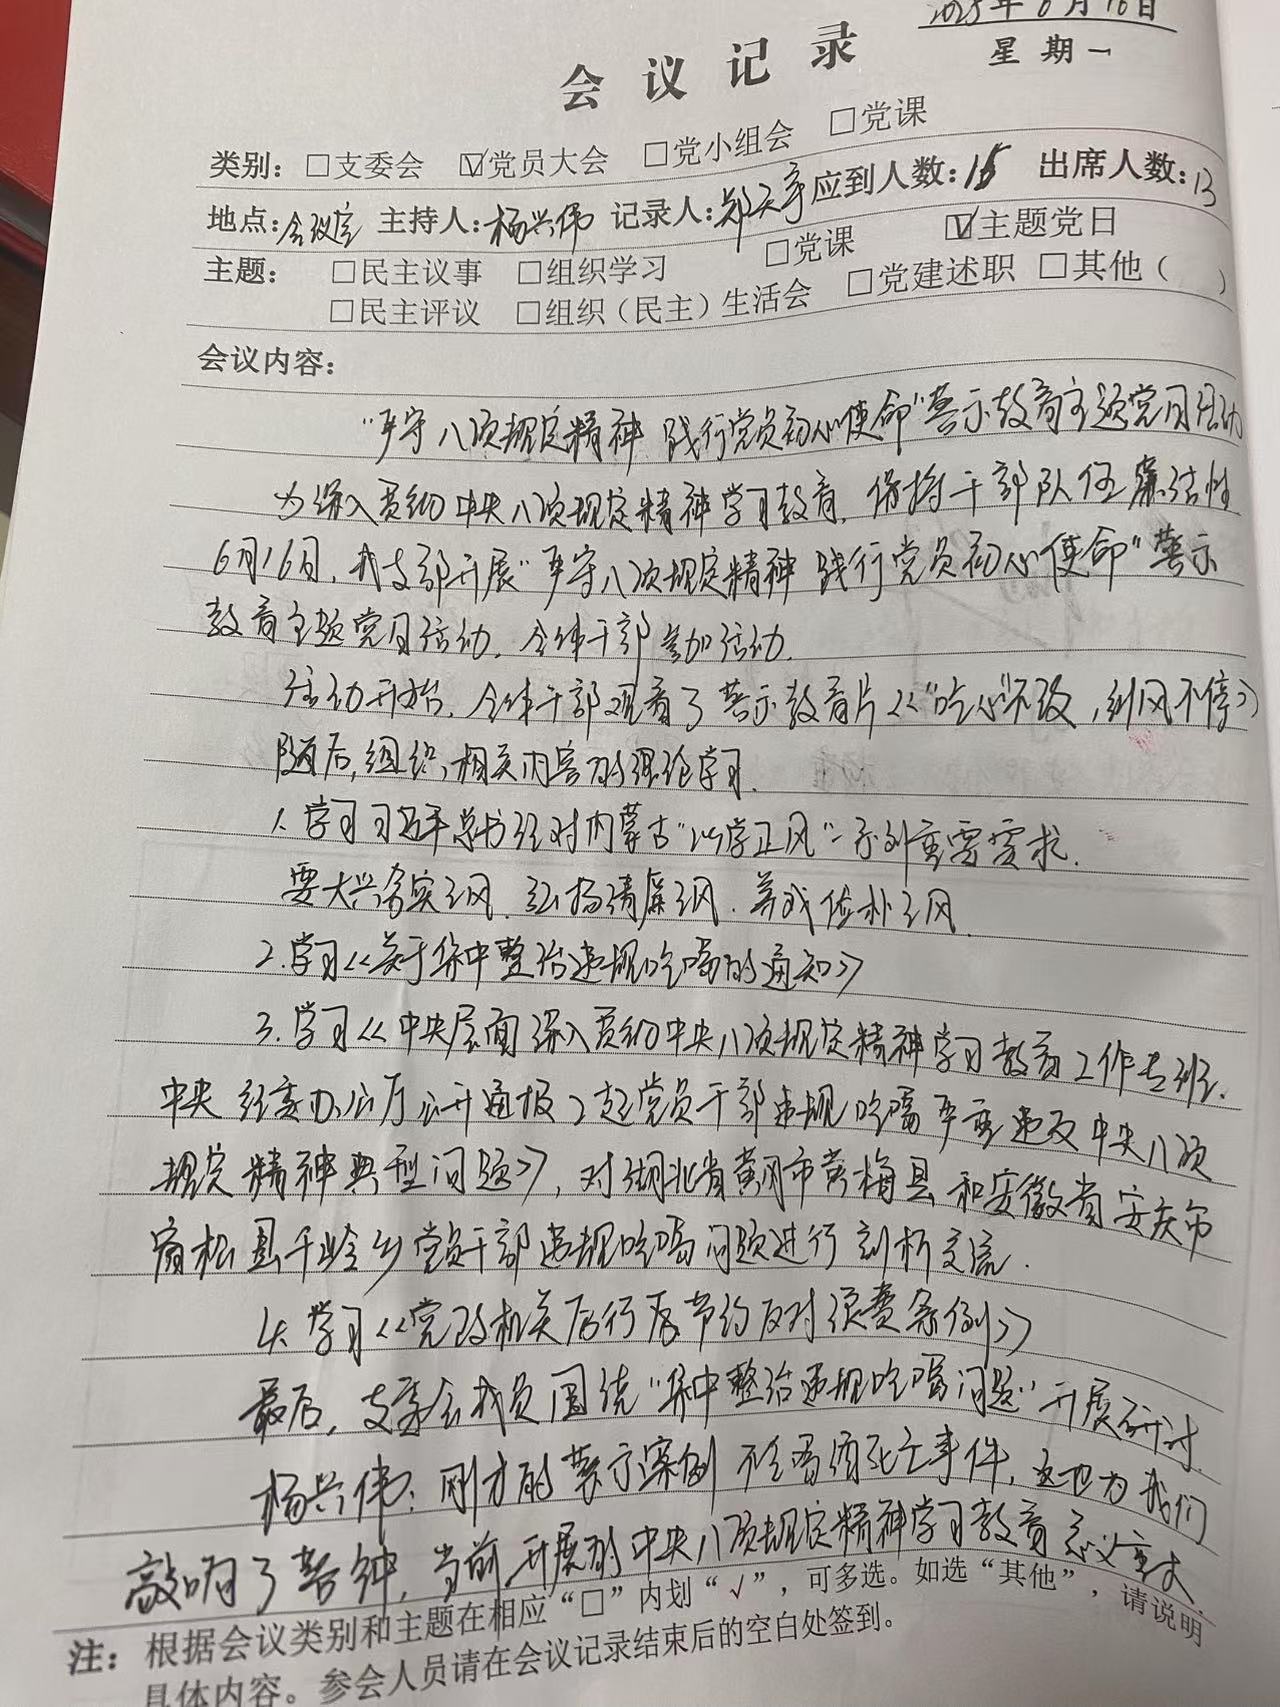 2025年6月16日
星期一
会议记录
类别：□支委会 ☑党员大会 □党小组会 □党课
地点：会议室 主持人：杨兴伟 记录人：郑天宇 应到人数：15 出席人数：13
主题： □民主议事 □组织学习 □党课 ☑主题党日
□民主评议 □组织（民主）生活会 □党建述职 □其他（ ）
会议内容：
“严守八项规定精神 践行党员初心使命”警示教育主题党日活动
为深入贯彻中央八项规定精神学习教育，保持干部队伍廉洁性
6月16日，我支部开展“严守八项规定精神 践行党员初心使命”警示
教育主题党日活动，全体干部参加活动.
活动开始，全体干部观看了警示教育片《“吃心”不改，纠风不停》
随后，组织相关内容的理论学习.
1.学习习近平总书记对内蒙古“以学正风”一系列重要要求.
要大兴务实之风、弘扬清廉之风、养成俭朴之风
2.学习《关于集中整治违规吃喝的通知》
3.学习《中央层面深入贯彻中央八项规定精神学习教育工作专班、
中央纪委办公厅公开通报2起党员干部违规吃喝严重违反中央八项
规定精神典型问题》，对湖北省黄冈市黄梅县和安徽省安庆市
宿松县千岭乡党员干部违规吃喝问题进行剖析交流.
4.学习《党政机关厉行节约反对浪费条例》
最后，支委会成员围绕“集中整治违规吃喝问题”开展研讨
杨兴伟：刚才的警示案例 不乏喝酒死亡事件，这也为我们
敲响了警钟，当前开展的中央八项规定精神学习教育意义重大.
注：根据会议类别和主题在相应“□”内划“√”，可多选。如选“其他”，请说明
具体内容。参会人员请在会议记录结束后的空白处签到。